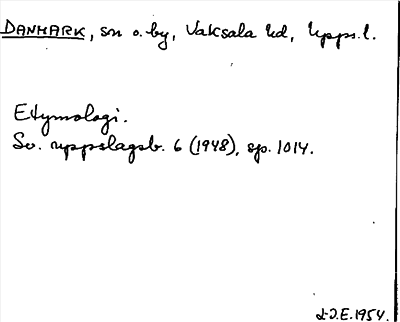 DANMARK, sn o. by, Vaksala hd, Upps. l.
Etymologi.
Sv. uppslagsb. 6 (1948), sp. 1014.
L-J.E. 1954.